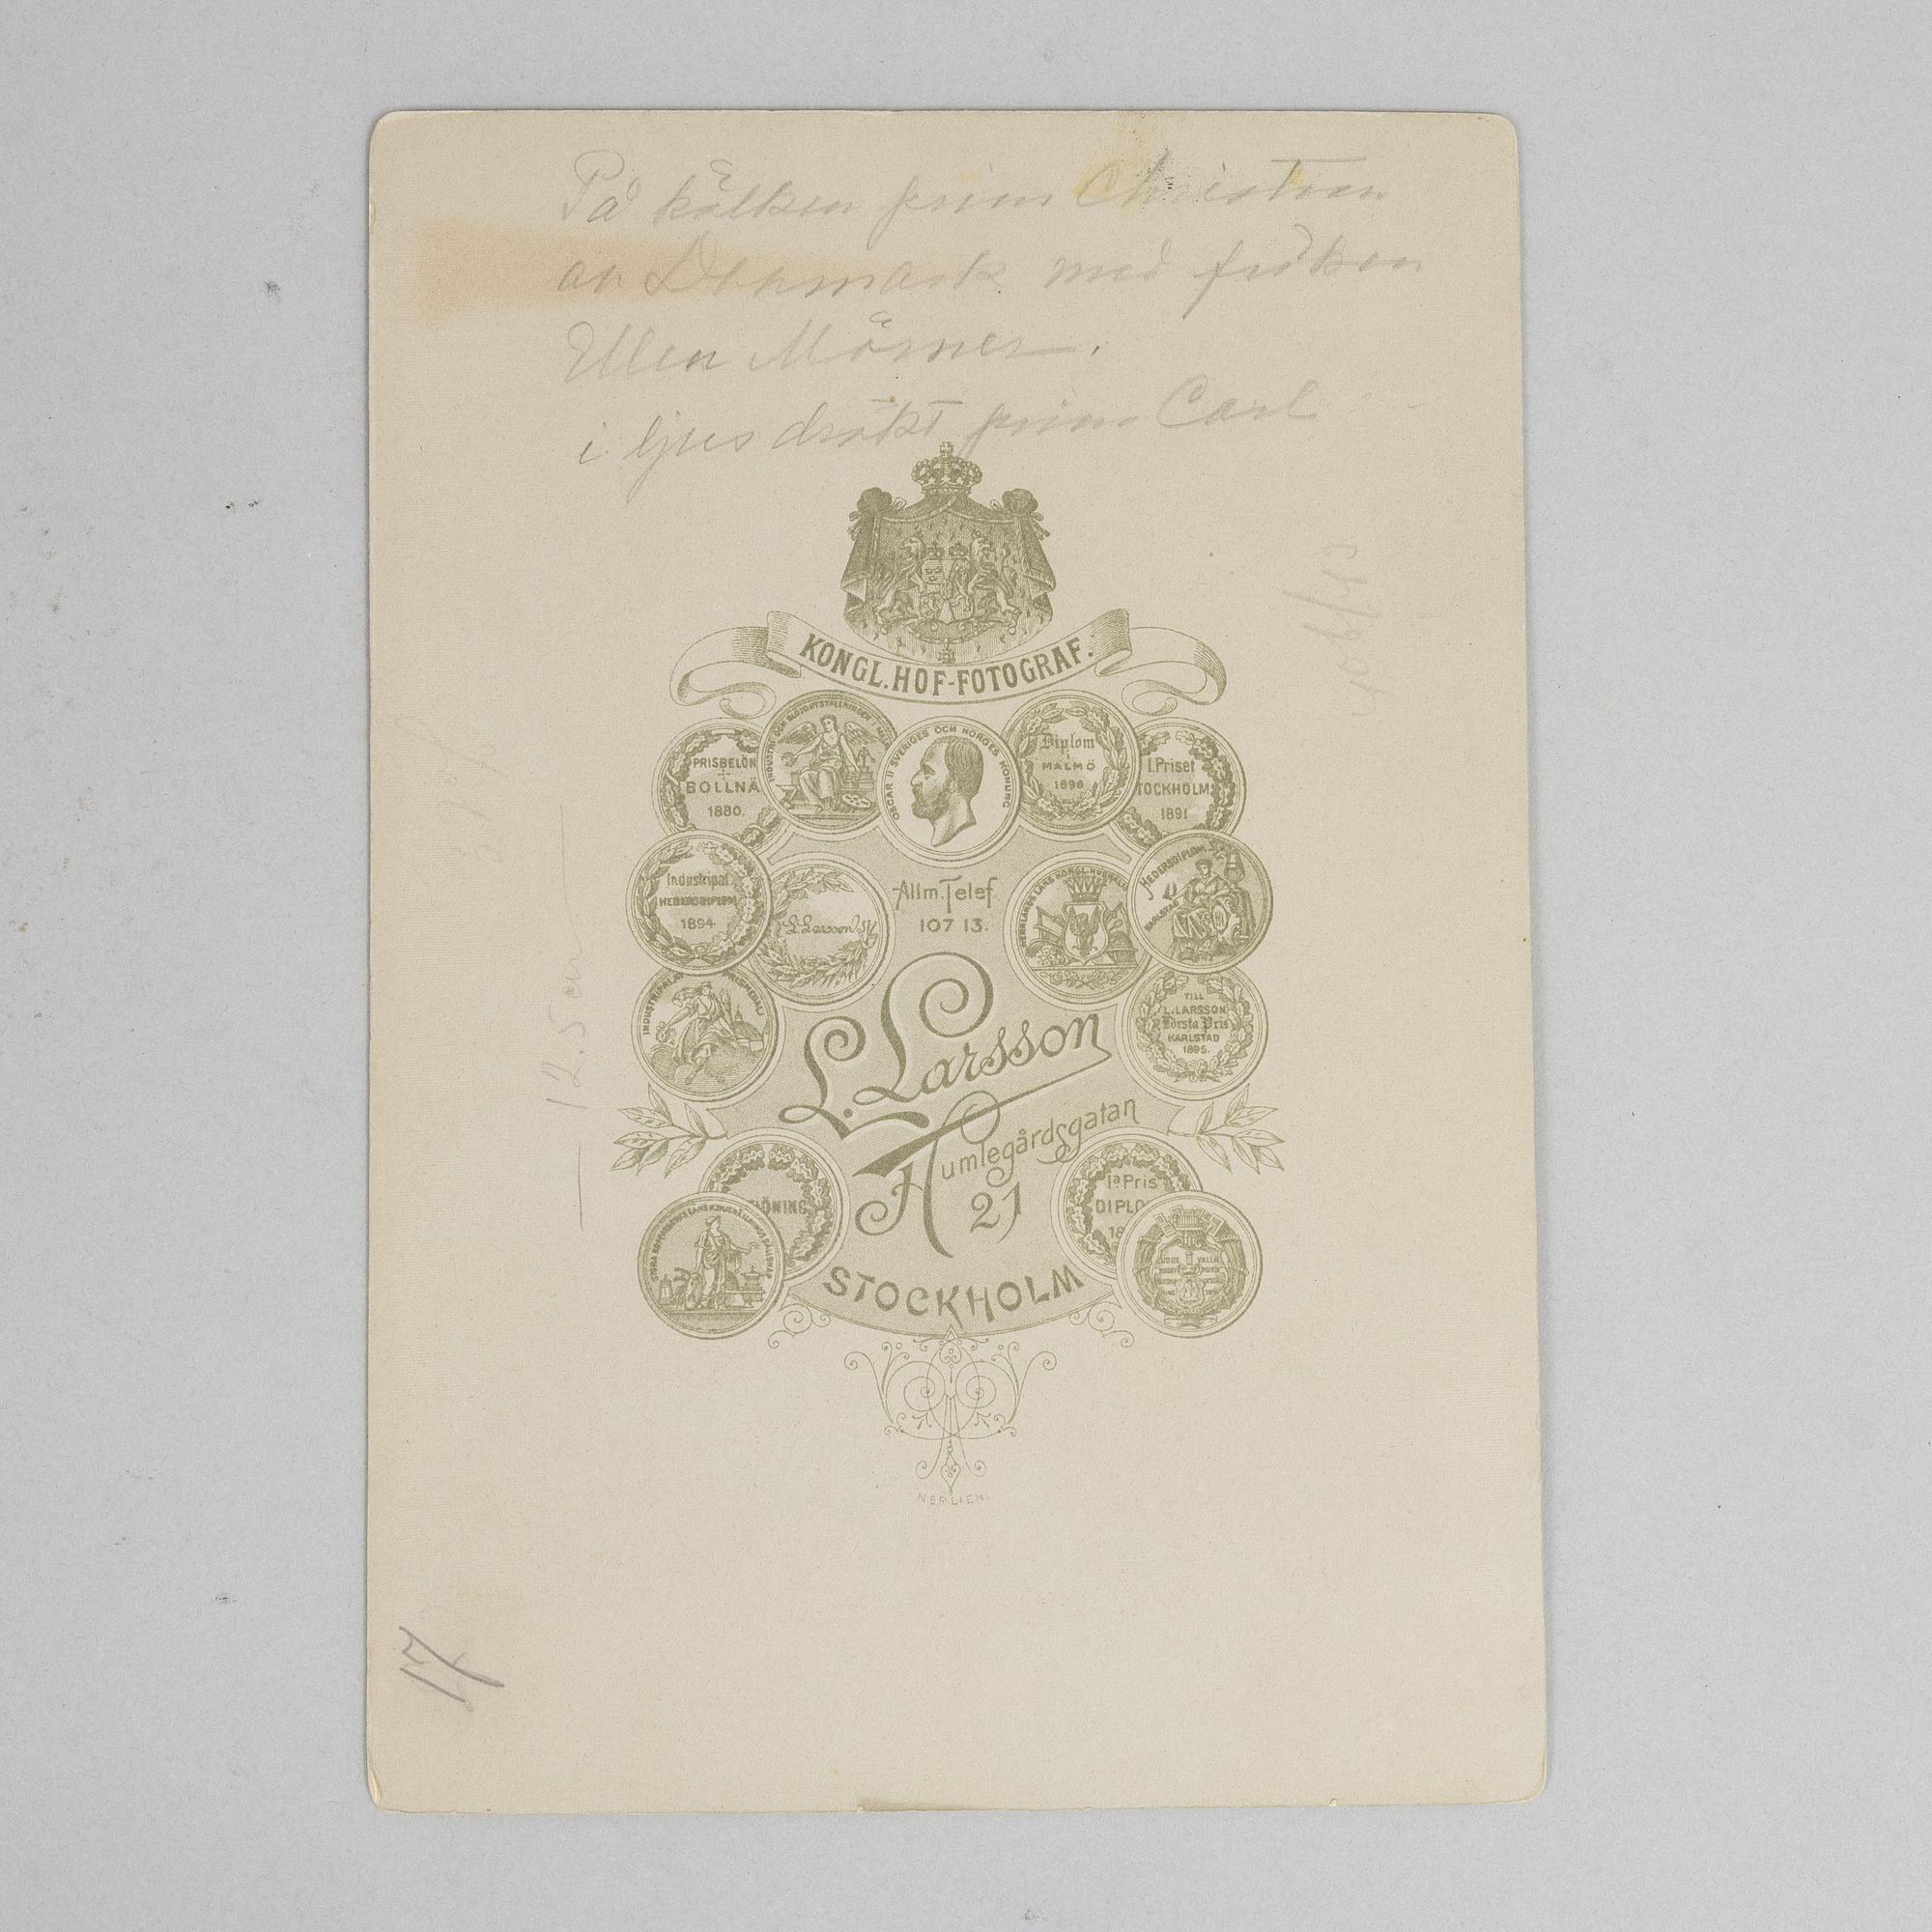 På kälken prins Christian
av Danmark med fröken
Ellen Mörner.
i ljus dräkt prins Carl
KONGL. HOF-FOTOGRAF.
PRISBELÖN
BOLLNÄ
1880.
OSCAR II SVERIGES OCH NORGES KONUNG
Diplom
MALMÖ
1896
I. Priset
TOCKHOLM
1891
Industripal.
HEDERSDIPLOM
1894
L. Larsson
Allm. Telef.
107 13.
HEDERSDIPLOM
KARLSTAD
TILL
L. LARSSON
Första Pris
KARLSTAD
1895.
L. Larsson
Humlegårdsgatan
21
STOCKHOLM
ÖNING
1a Pris
DIPLO
18
NERLIEN
12.5 cm
17